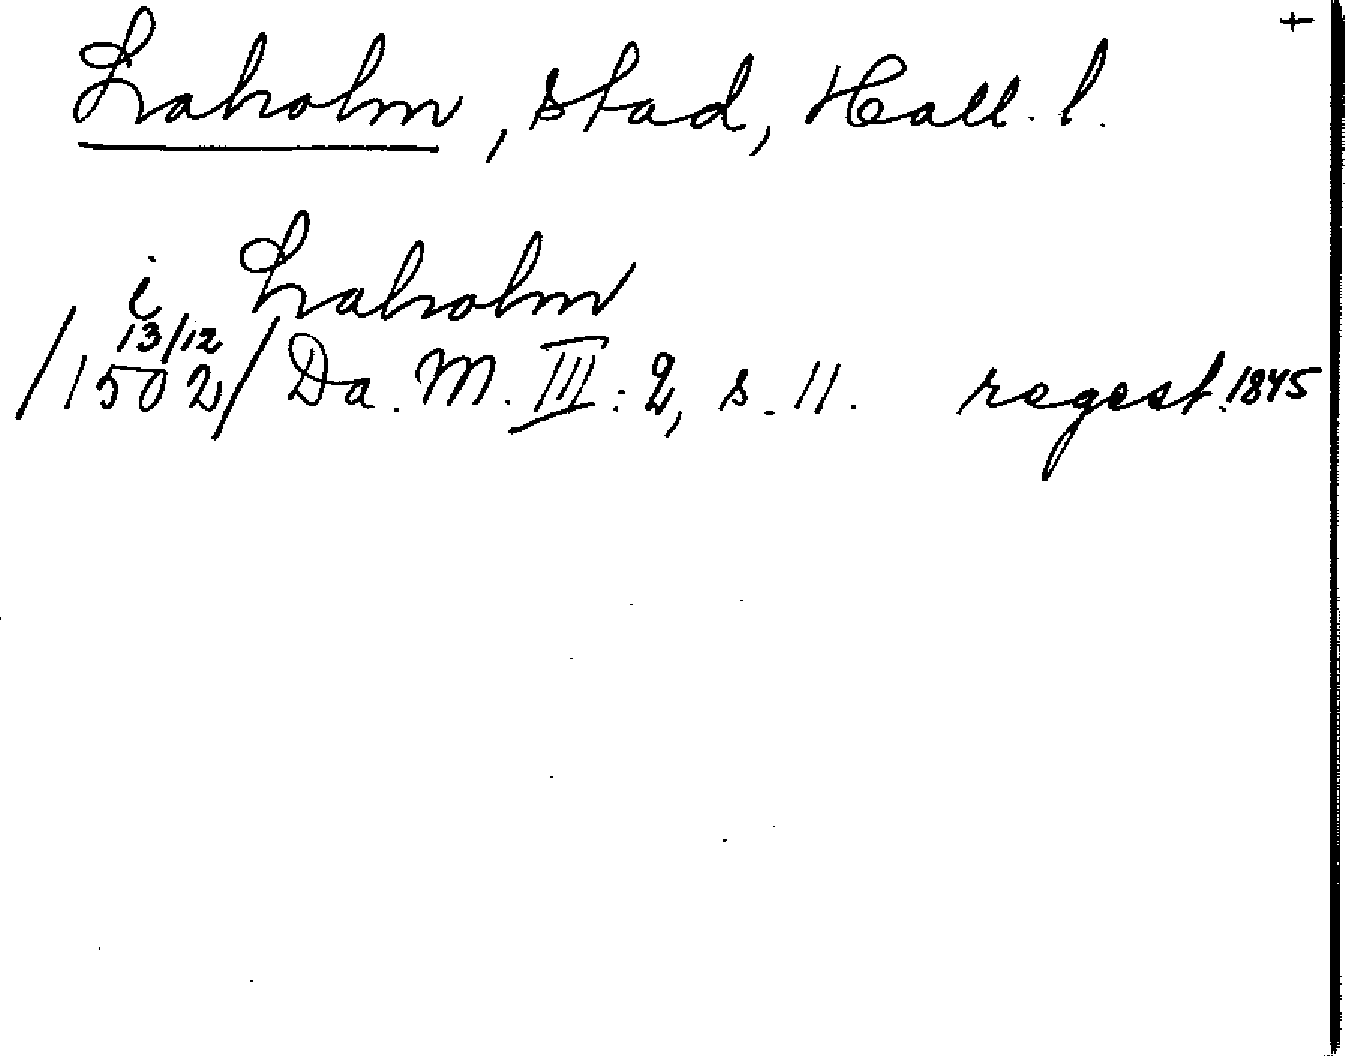 +
Laholm, stad, Hall. l.
i Laholm
13/12
/1502/ Da. M. III: 2, s. 11. regest. 1845